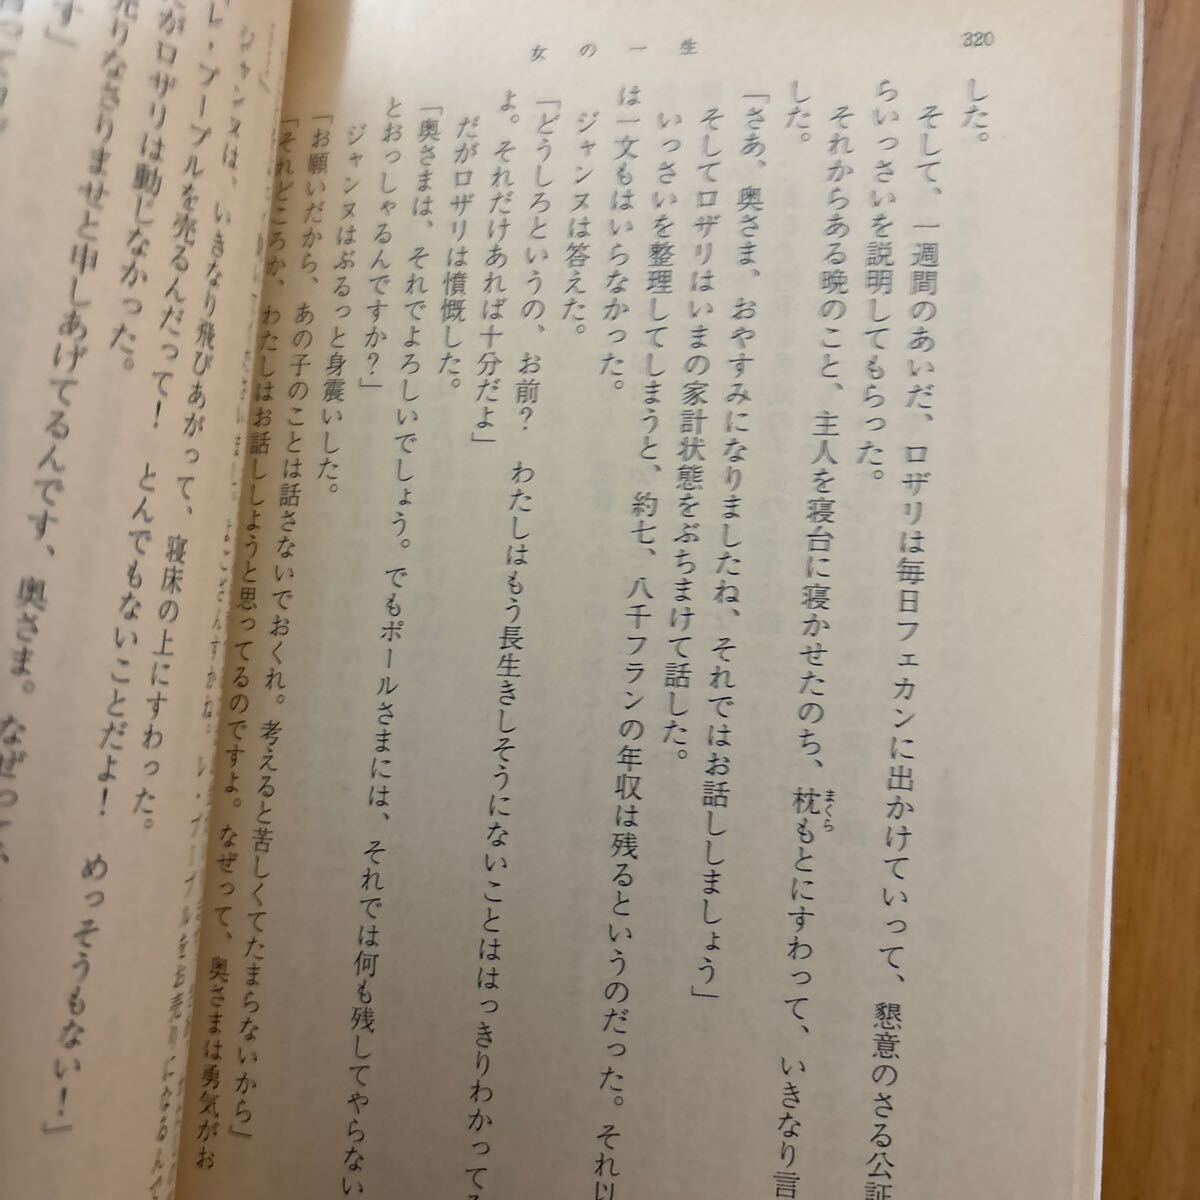 320
女の一生
した。
そして、一週間のあいだ、ロザリは毎日フェカンに出かけていって、懇意のさる公証
らいっさいを説明してもらった。
それからある晩のこと、主人を寝台に寝かせたのち、枕もとにすわって、いきなり言
まくら
した。
「さあ、奥さま、おやすみになりましたね、それではお話ししましょう」
そしてロザリはいまの家計状態をぶちまけて話した。
いっさいを整理してしまうと、約七、八千フランの年収は残るというのだった。それ以
は一文もはいらなかった。
ジャンヌは答えた。
「どうしろというの、お前？　わたしはもう長生きしそうにないことははっきりわかってる
よ。それだけあれば十分だよ」
だがロザリは憤慨した。
「奥さまは、それでよろしいでしょう。でもポールさまには、それでは何も残してやらない
とおっしゃるんですか？」
ジャンヌはぶるっと身震いした。
「お願いだから、あの子のことは話さないでおくれ。考えると苦しくてたまらないから」
「それどころか、わたしはお話ししようと思ってるのですよ。なぜって、奥さまは勇気がお
ジャンヌは、いきなり飛びあがって、寝床の上にすわった。
レ・プープルを売るんだって！　とんでもないことだよ！　めっそうもない！」
がロザリは動じなかった。
売りなさりませと申しあげてるんです、奥さま。なぜって、
す」